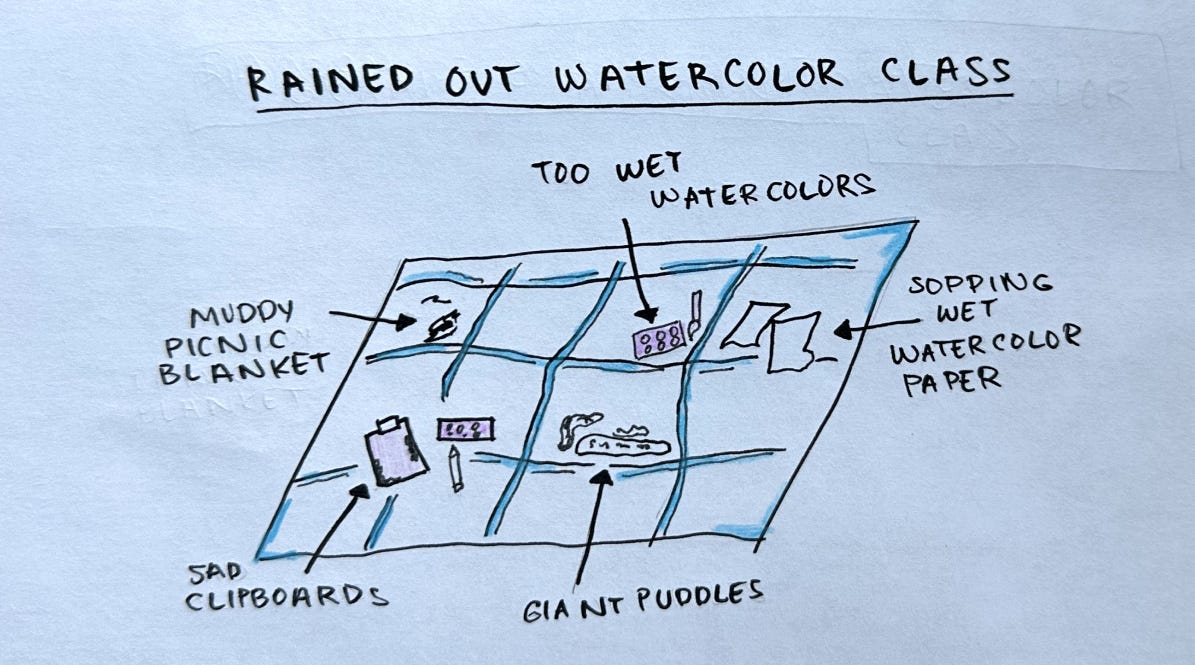 RAINED OUT WATERCOLOR CLASS
TOO WET
WATERCOLORS
MUDDY
PICNIC
BLANKET
SOPPING
WET
WATERCOLOR
PAPER
SAD
CLIPBOARDS
GIANT PUDDLES